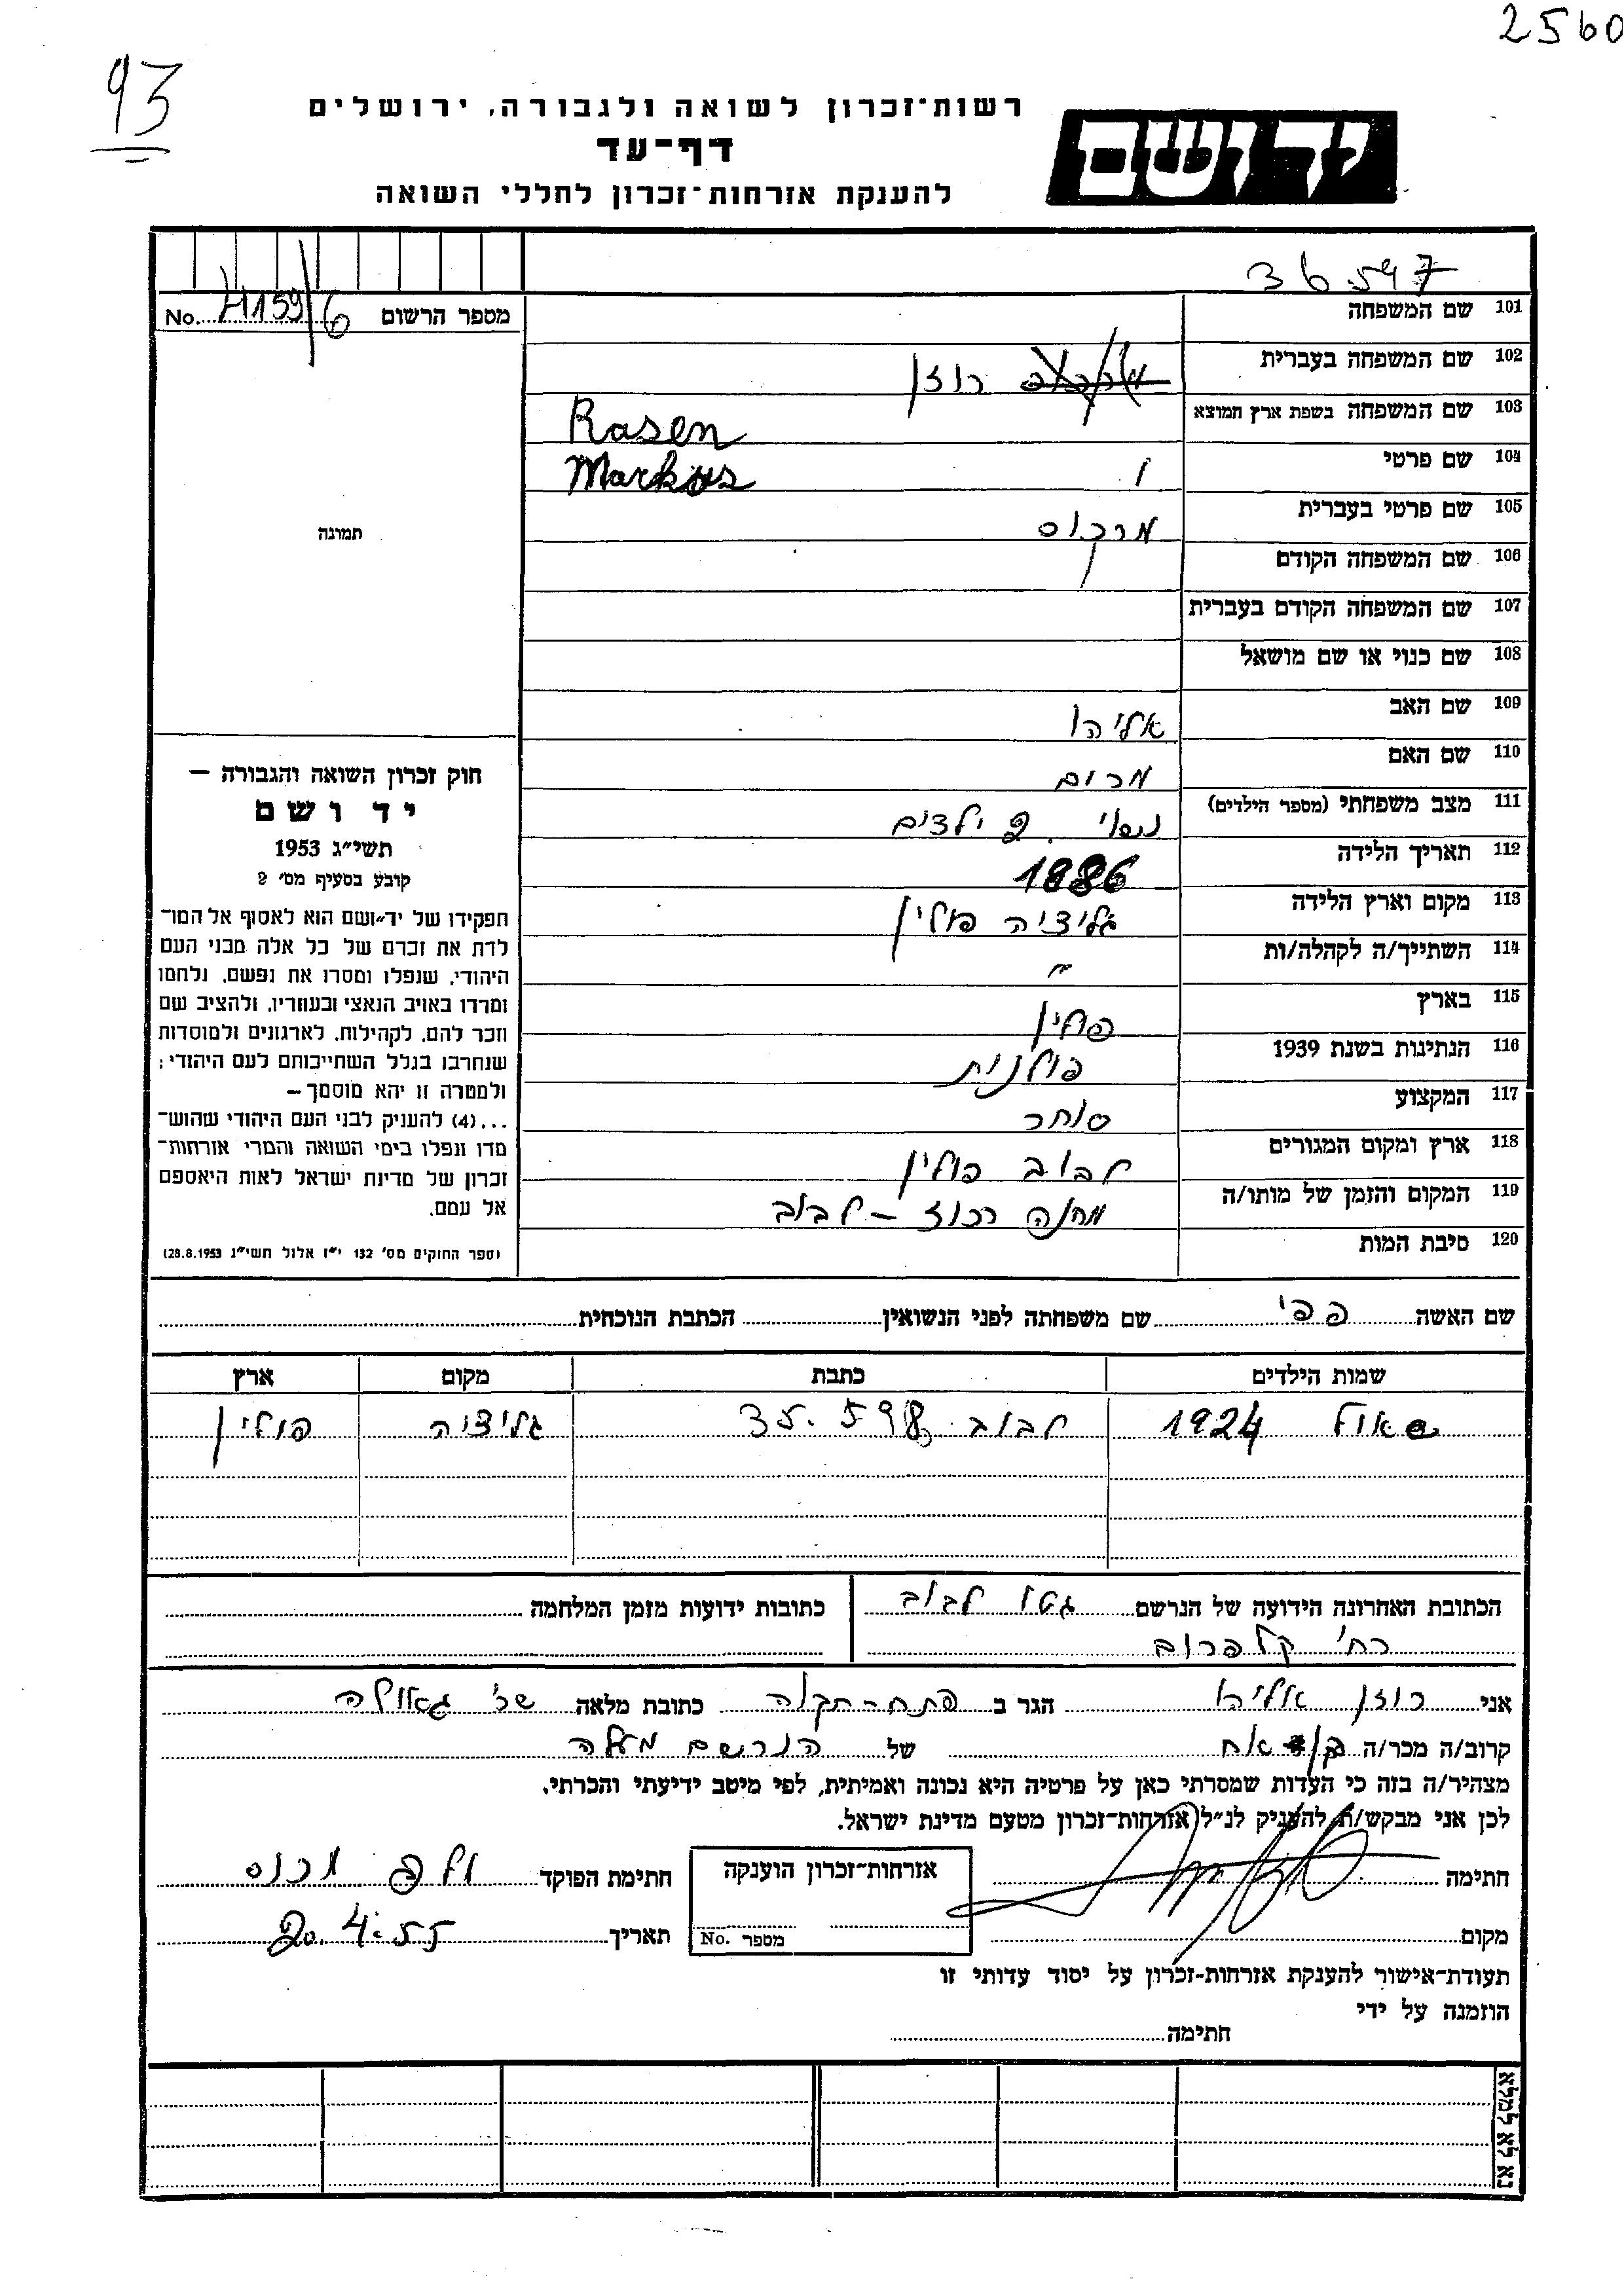 2560
93
רשות־זכרון לשואה ולגבורה, ירושלים
דף־עד
להענקת אזרחות־זכרון לחללי השואה
יד ושם
36.597
מספר הרשום No. 4159/6
תמונה
101 שם המשפחה
102 שם המשפחה בעברית רוזן
103 שם המשפחה בשפת ארץ המוצא Rasen
104 שם פרטי Markus
105 שם פרטי בעברית מרקוס
106 שם המשפחה הקודם
107 שם המשפחה הקודם בעברית
108 שם כנוי או שם מושאל
109 שם האב אליהו
110 שם האם מרים
111 מצב משפחתי (מספר הילדים) נשוי ילדים
112 תאריך הלידה 1886
113 מקום וארץ הלידה גליציה פולין
114 השתייך/ה לקהלה/ות "
115 בארץ פולין
116 הנתינות בשנת 1939 פולנית
117 המקצוע סוחר
118 ארץ ומקום המגורים לבוב פולין
119 המקום והזמן של מותו/ה מחנה רכוז – לבוב
120 סיבת המות
חוק זכרון השואה והגבורה —
יד ושם
תשי״ג 1953
קובע בסעיף מס׳ 2
תפקידו של יד־ושם הוא לאסוף אל המו־
לדת את זכרם של כל אלה מבני העם
היהודי, שנפלו ומסרו את נפשם, נלחמו
ומרדו באויב הנאצי ובעוזריו, ולהציב שם
וזכר להם, לקהילות, לארגונים ולמוסדות
שנחרבו בגלל השתייכותם לעם היהודי;
ולמטרה זו יהא מוסמך —
...(4) להעניק לבני העם היהודי שהוש־
מדו ונפלו בימי השואה והמרי אזרחות־
זכרון של מדינת ישראל לאות היאספם
אל עמם.
(ספר החוקים מס׳ 132 י״ז אלול תשי״ג 28.8.1953)
שם האשה פפי שם משפחתה לפני הנשואין הכתבת הנוכחית
שמות הילדים כתבת מקום ארץ
שאול 1924 לבוב 35.598 גליציה פולין
הכתובת האחרונה הידועה של הנרשם גטו לבוב
רח׳ קלפרוב
כתובות ידועות מזמן המלחמה
אני רוזן אליהו הגר ב פתח־תקוה כתובת מלאה שכ׳ גאולה
קרוב/ה מכר/ה אח של הנרשם מעלה
מצהיר/ה בזה כי העדות שמסרתי כאן על פרטיה היא נכונה ואמיתית, לפי מיטב ידיעתי והכרתי.
לכן אני מבקש/ת להעניק לנ״ל אזרחות־זכרון מטעם מדינת ישראל.
חתימה
אזרחות־זכרון הוענקה
מספר No.
חתימת הפוקד
מקום
תאריך 20.4.55
תעודת־אישור להענקת אזרחות־זכרון על יסוד עדותי זו
הוזמנה על ידי
חתימה
נא לא למלא